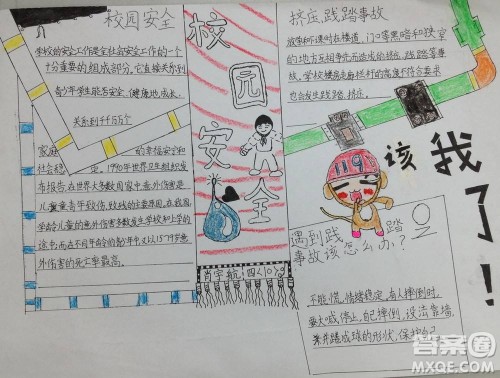 校园安全
学校的安全工作是全社会安全工作的一个
十分重要的组成部分。它直接关系到
青少年学生能否安全、健康地成长。
关系到千千万万个
家庭的幸福安全和
社会稳定。1990年世界卫生组织发
布报告,在世界大多数国家中,意外伤害是
儿童青少年致伤、致残的主要原因。在我国
学龄儿童的意外伤害多数发生学校和上学的
途中;而在不同年龄的青少年中,又以15-19岁意
外伤害的死亡率最高。
校园安全
肖宇航:四(10)
挤压,践踏事故
放学和下课时在楼道、门口等黑暗和狭窄
的地方互相争先而造成的挤压、践踏等事
故。学校楼房走廊栏杆的高度不符合要求
也会发生践踏、挤压。
119
该我了!
遇到践踏
事故该怎么办?
不能慌,情绪稳定,有人摔倒时,
要大喊,停止,自己摔倒,设法靠墙,
紧并蹲成球的形状,保护自己
答案圈